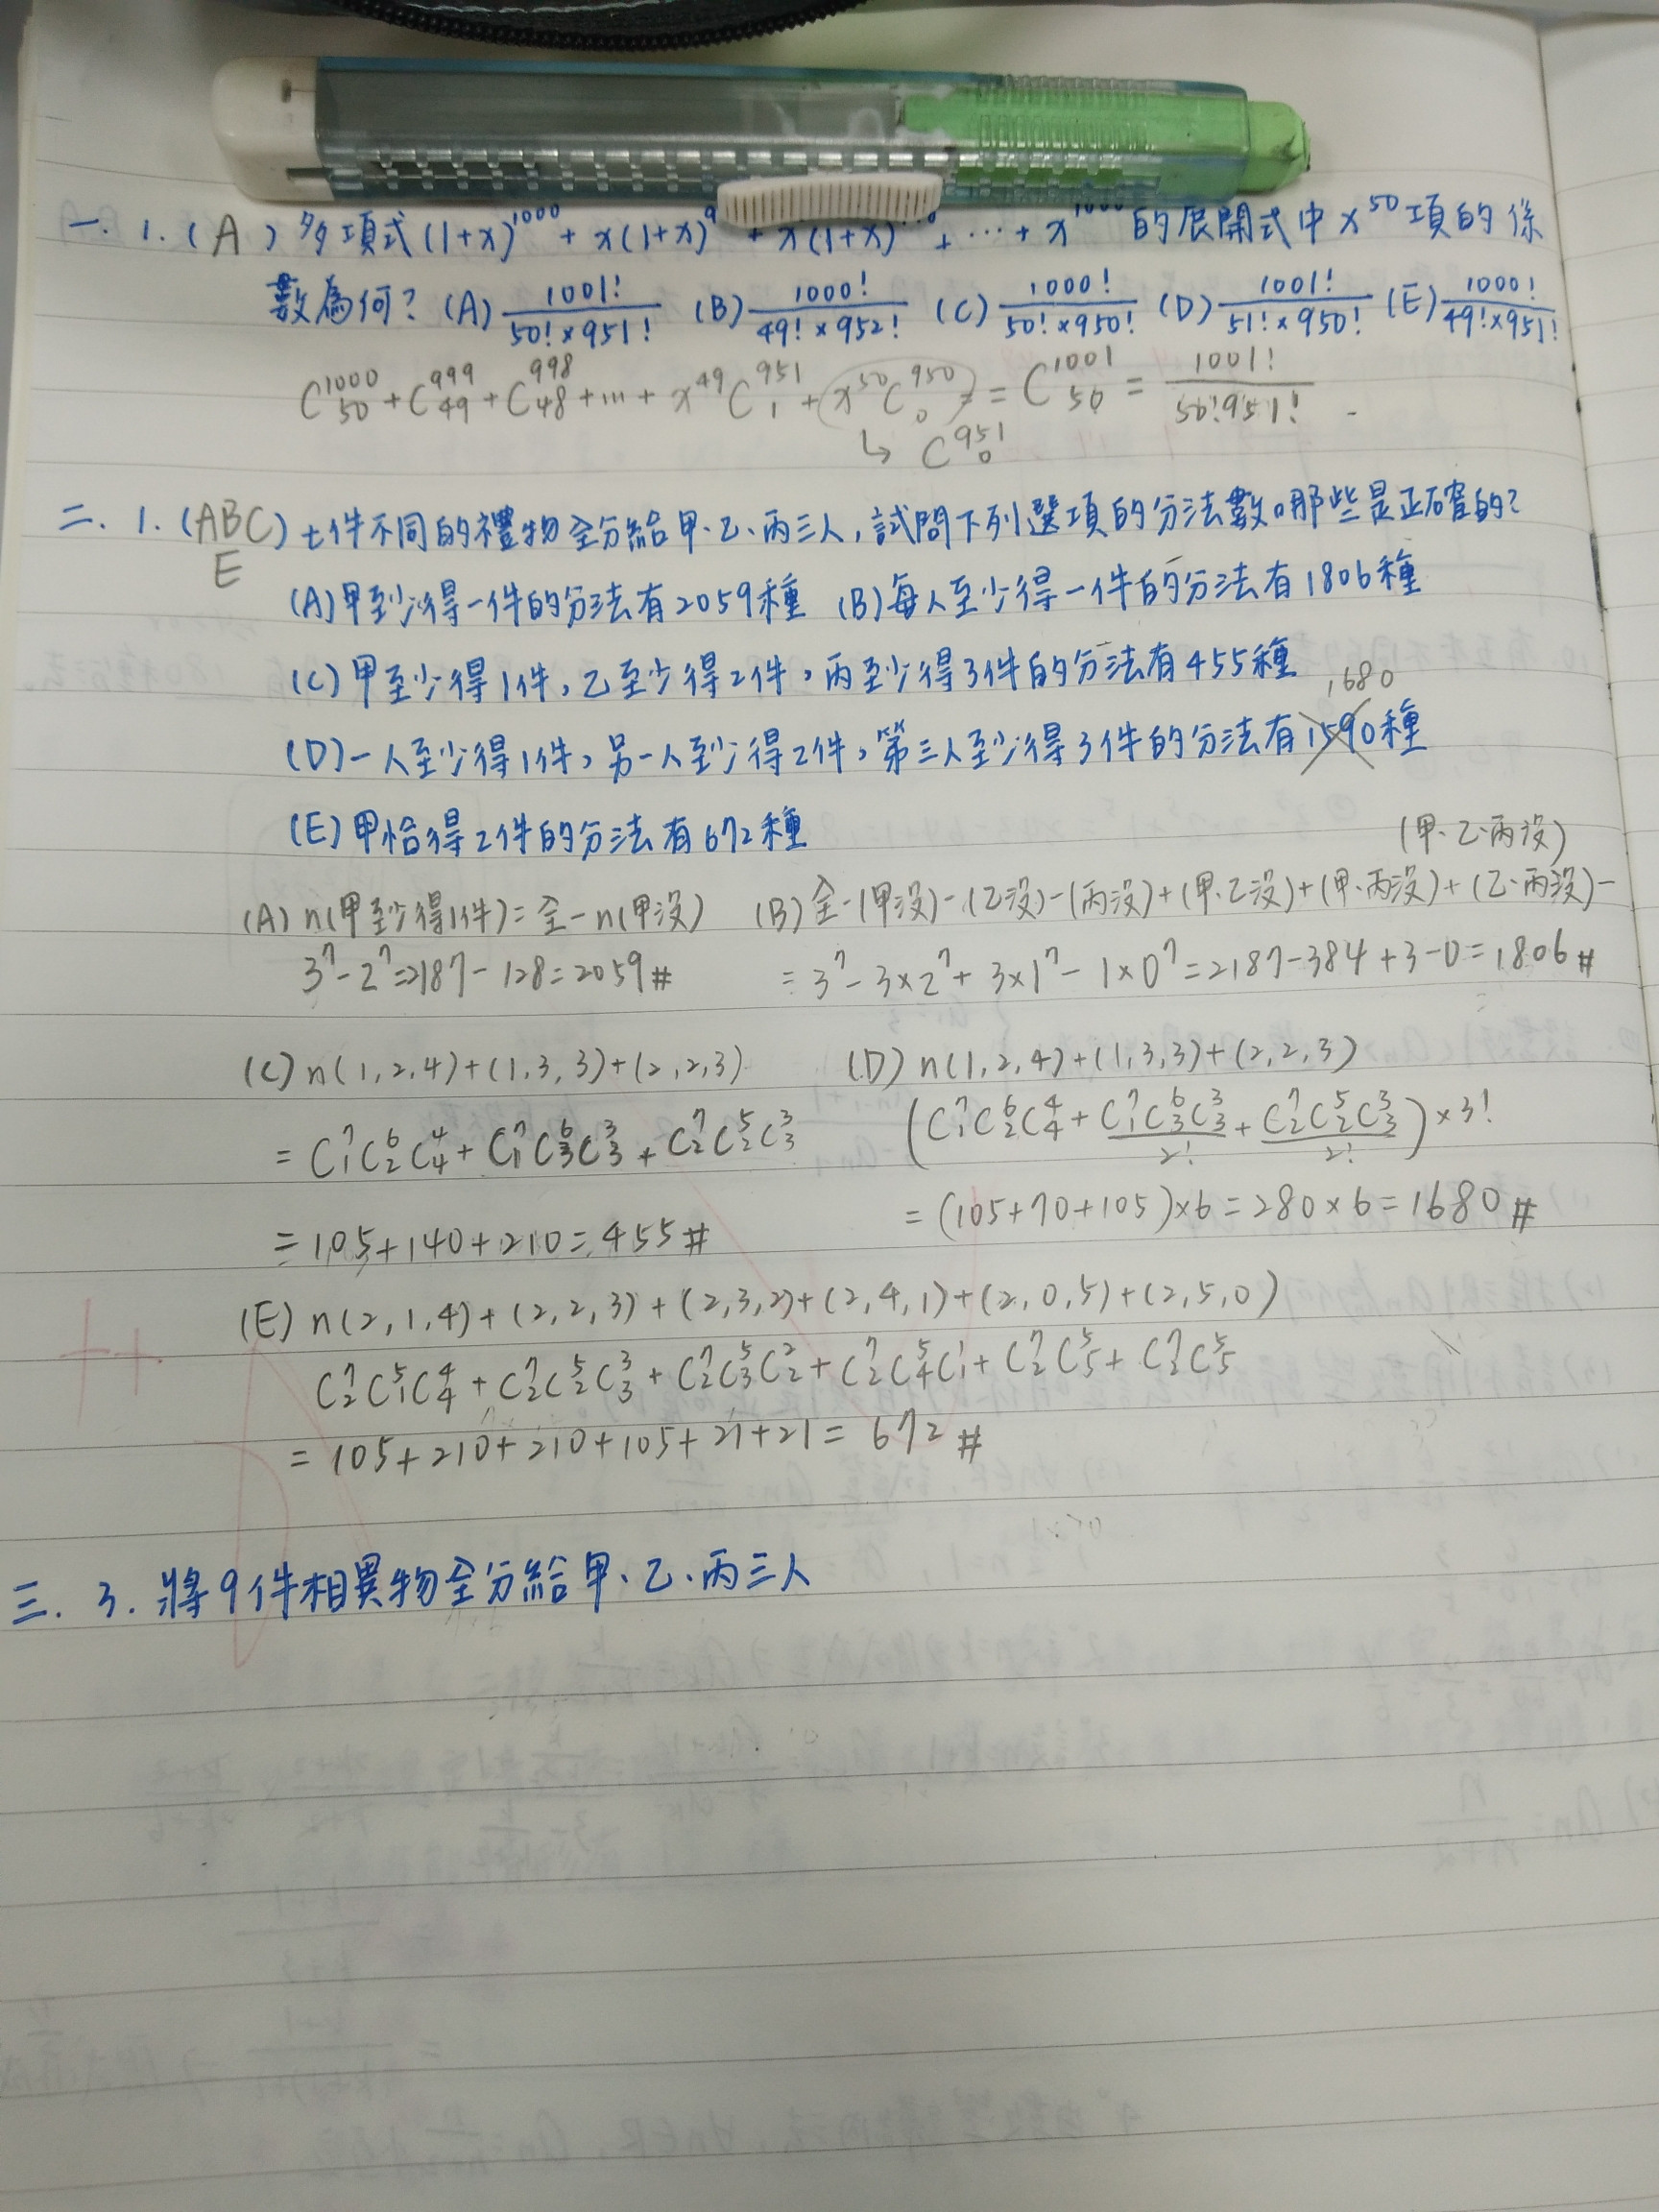 一. 1. (A) 多項式(1+x)^1000 + x(1+x)^9 + x(1+x) + ⋯ + x^1000 的展開式中x^50項的係
數為何? (A) 1001!/(50!×951!) (B) 1000!/(49!×952!) (C) 1000!/(50!×950!) (D) 1001!/(51!×950!) (E) 1000!/(49!×951!)
C^1000_50 + C^999_49 + C^998_48 + ⋯ + x^49 C^951_1 + x^50 C^950_0 = = C^1001_50 = 1001!/(50!951!)
↳ C^951_0
二. 1. (ABC) 七件不同的禮物全分給甲、乙、丙三人,試問下列選項的分法數哪些是正確的?
E
(A)甲至少得一件的分法有2059種 (B)每人至少得一件的分法有1806種
(C)甲至少得1件,乙至少得2件,丙至少得3件的分法有455種
1680
(D)一人至少得1件,另一人至少得2件,第三人至少得3件的分法有1590種
(E)甲恰得2件的分法有672種
(甲、乙、丙沒)
(A) n(甲至少得1件)=全-n(甲沒) (B) 全-(甲沒)-(乙沒)-(丙沒)+(甲、乙沒)+(甲、丙沒)+(乙、丙沒)-
3^7-2^7=2187-128=2059# =3^7-3×2^7+3×1^7-1×0^7=2187-384+3-0=1806#
(C) n(1,2,4)+(1,3,3)+(2,2,3) (D) n(1,2,4)+(1,3,3)+(2,2,3)
= C^7_1 C^6_2 C^4_4 + C^7_1 C^6_3 C^3_3 + C^7_2 C^5_2 C^3_3 (C^7_1 C^6_2 C^4_4 + C^7_1 C^6_3 C^3_3/2! + C^7_2 C^5_2 C^3_3/2!)×3!
=105+140+210=455# =(105+70+105)×6=280×6=1680#
(E) n(2,1,4)+(2,2,3)+(2,3,2)+(2,4,1)+(2,0,5)+(2,5,0)
C^7_2 C^5_1 C^4_4 + C^7_2 C^5_2 C^3_3 + C^7_2 C^5_3 C^2_2 + C^7_2 C^5_4 C^1_1 + C^7_2 C^5_5 + C^7_2 C^5_5
=105+210+210+105+21+21=672#
三. 3. 將9件相異物全分給甲、乙、丙三人